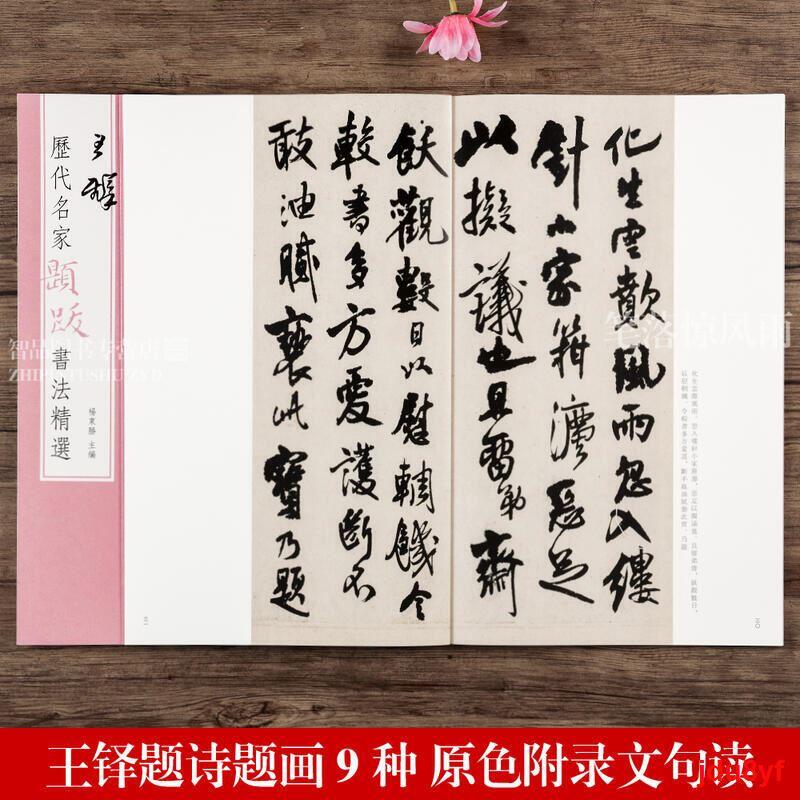 王鐸
歷代名家題跋書法精選
楊東勝 主編
化生雲歊風雨忽入縷
針小家籍
惡足
以擬議也且留弟齋
飫觀數日以慰輖饑令
較書多方愛護斷不
敢油膩褻此寶乃題
笔落惊风雨
智品图书专营店
ZHIPINTUSHUZYD
王铎题诗题画 9 种 原色附录文句读